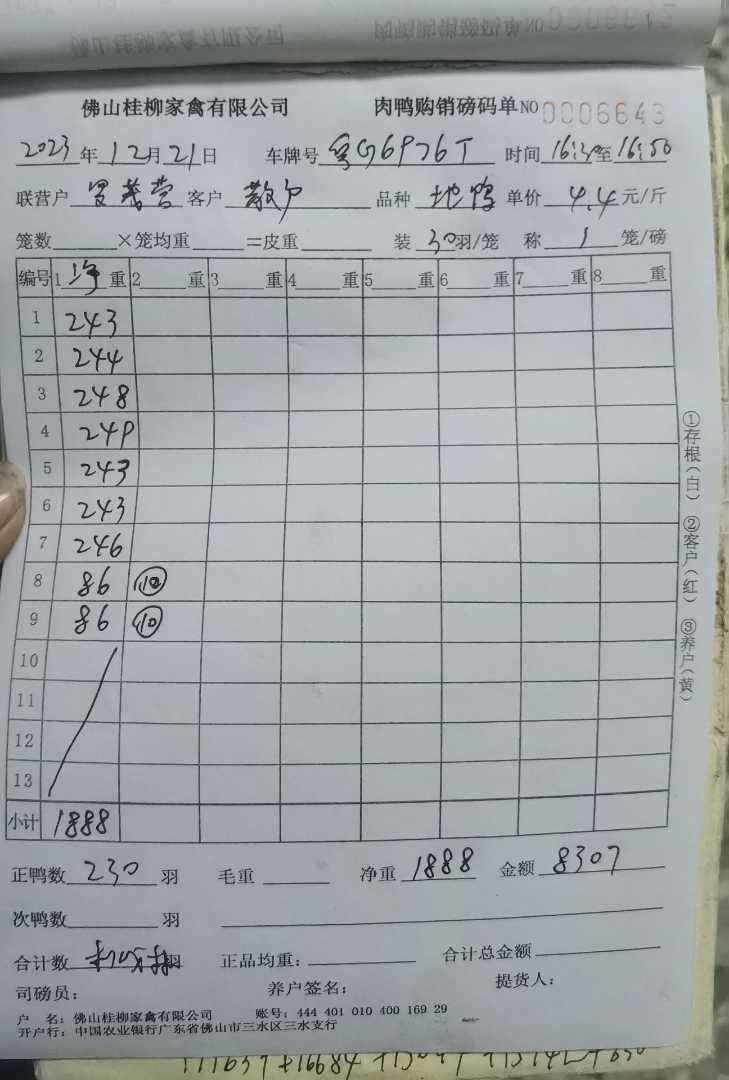 佛山桂柳家禽有限公司 肉鸭购销磅码单 NO 0006643
2023年12月21日 车牌号 粤G6P76T 时间 16:30至16:50
联营户 客户 散户 品种 地鸭 单价 4.4 元/斤
笼数 ×笼均重 =皮重 装 30 羽/笼 称 1 笼/磅
编号 1 净 重 2 重 3 重 4 重 5 重 6 重 7 重 8 重
1 243
2 244
3 248
4 249
5 243
6 243
7 246
8 86 ⑩
9 86 ⑩
10
11
12
13
小计 1888
正鸭数 230 羽 毛重 净重 1888 金额 8307
次鸭数 羽
合计数 羽 正品均重: 合计总金额
司磅员: 养户签名: 提货人:
户 名: 佛山桂柳家禽有限公司 账号: 444 401 010 400 169 29
开户行: 中国农业银行广东省佛山市三水区三水支行
①存根(白) ②客户(红) ③养户(黄)